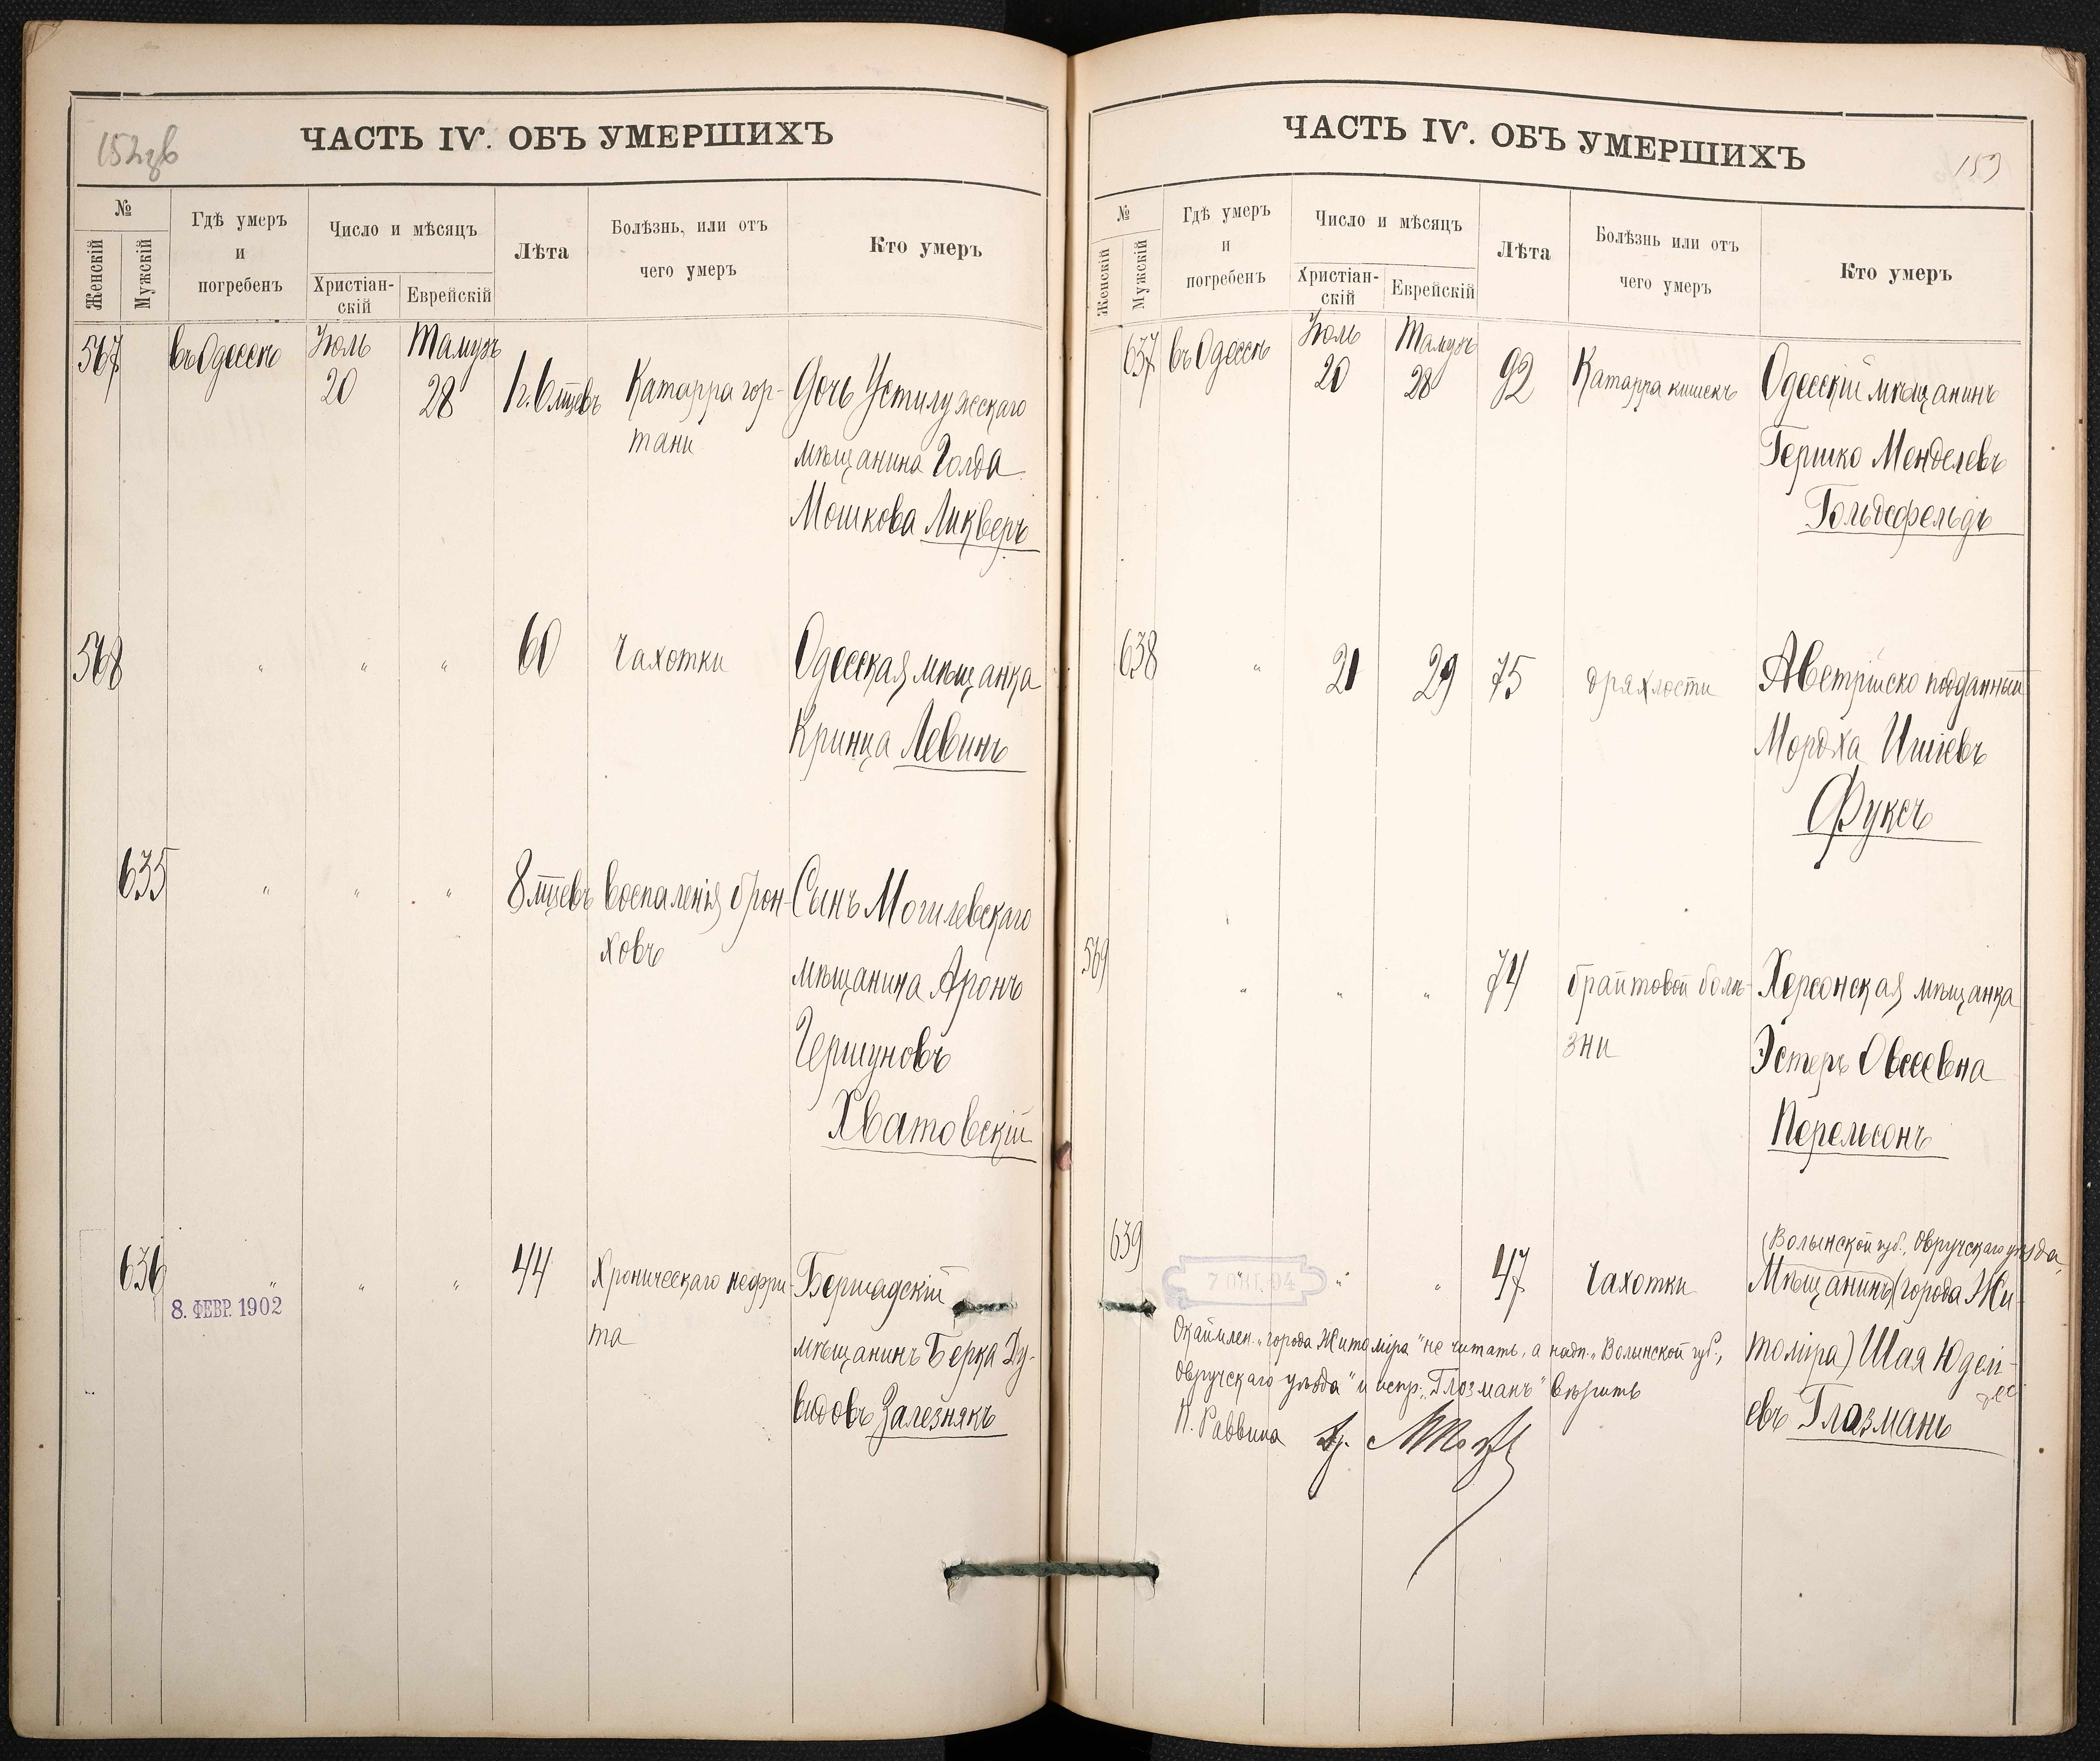 152об
ЧАСТЬ IV. ОБЪ УМЕРШИХЪ
№
Женскій
Мужскій
Гдѣ умеръ
и
погребенъ
Число и мѣсяцъ
Христіан-
скій
Еврейскій
Лѣта
Болѣзнь, или отъ
чего умеръ
Кто умеръ
567 въ Одессѣ Іюль Тамузъ
20 28 1 г. 6 мцевъ Катарра гор- Дочь Устилужскаго
тани мѣщанина Голда
Мошкова Ликверъ
568 " " " 60 Чахотки Одесская мѣщанка
Криница Левинъ
635 " " " 8 мцевъ воспаленія брон- Сынъ Могилевскаго
ховъ мѣщанина Аронъ
Гершуновъ
Хватовскій
636 " " " 44 Хроническаго нефри- Бершадскій
8. ФЕВР. 1902
та мѣщанинъ Берка Ду-
видовъ Залезнякъ
ЧАСТЬ IV. ОБЪ УМЕРШИХЪ
153
№
Женскій
Мужскій
Гдѣ умеръ
и
погребенъ
Число и мѣсяцъ
Христіан-
скій
Еврейскій
Лѣта
Болѣзнь или отъ
чего умеръ
Кто умеръ
637 въ Одессѣ Іюль Тамузъ
20 28 92 Катарра кишекъ Одесскій мѣщанинъ
Гершко Менделевъ
Гольдефельдъ
638 " 21 29 75 дряхлости Австрійско подданный
Мордха Ишіевъ
Фуксъ
569 " " " 74 брайтовой болѣ- Херсонская мѣщанка
зни Эстеръ Овсеевна
Перельсонъ
(Волынской губ., Овручскаго уѣзда,
639 " " " 47 Чахотки Мѣщанинъ (города Жи-
7 ОКТ. 94
томіра) Шая Юделі-
евъ Глозманъ
Окаймлен. "города Житоміра" не читать, а надп. "Волынской губ.,
Овручскаго уѣзда" и испр. "Глозманъ" вѣрить
П. Раввина